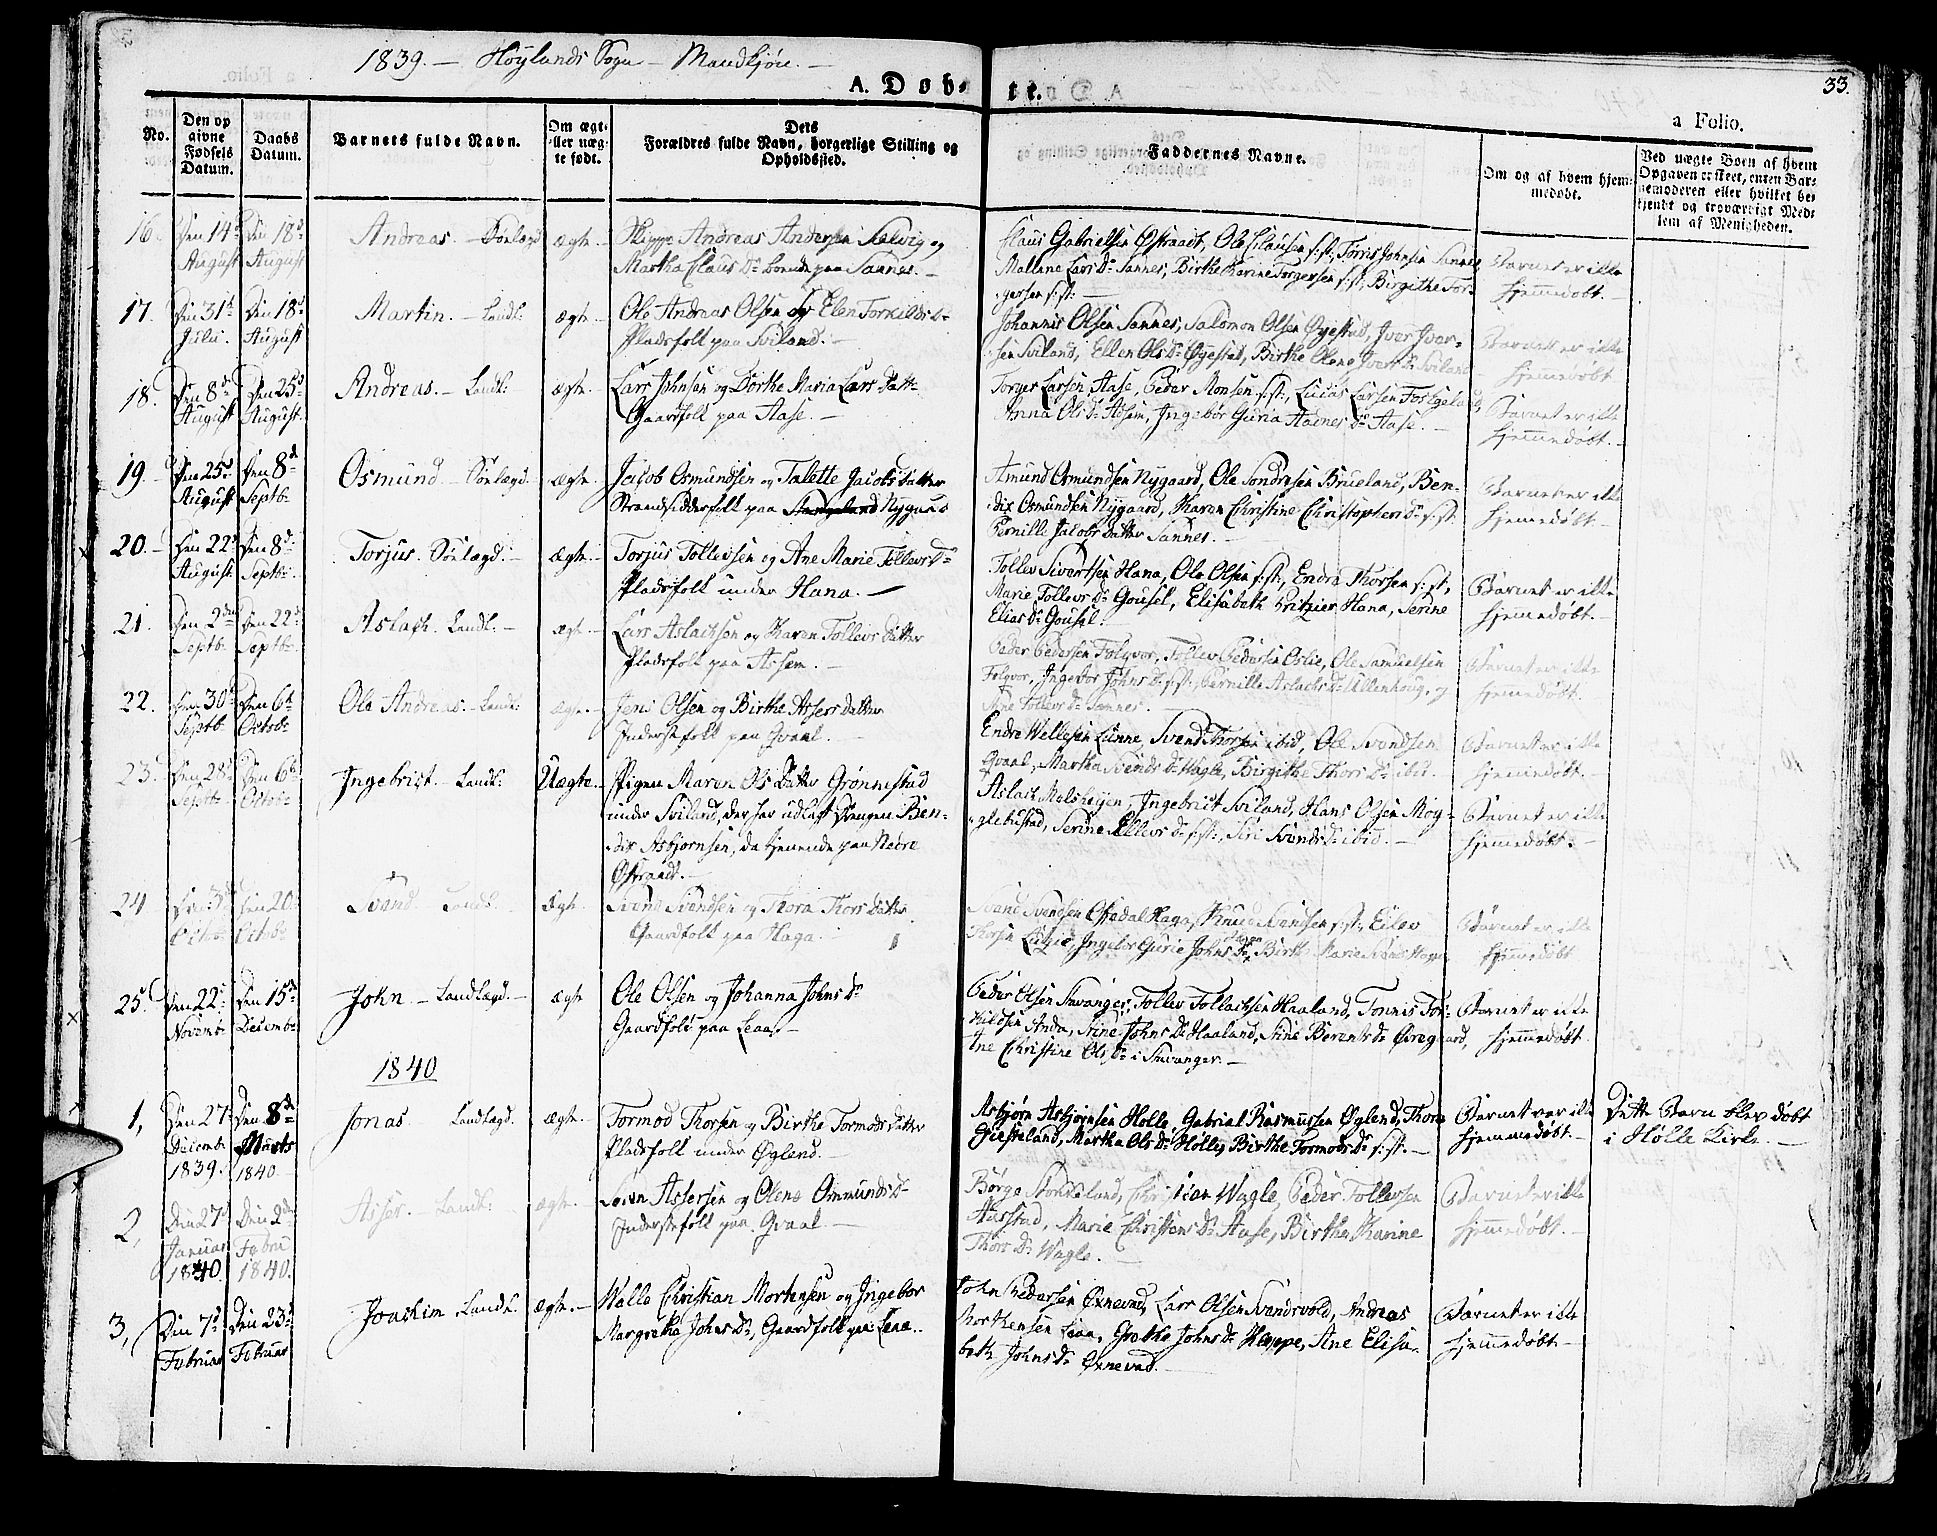 1839. — Höylands Sogn — Mandkjön. —
A. Döbte.
33.
a Folio.
No.
Den opgivne Fødsels Datum.
Daabs Datum.
Barnets fulde Navn.
Om ægte eller uægte født.
Dets Forældres fulde Navn, borgerlige Stilling og Opholdssted.
Faddernes Navne.
Om og af hvem hjemmedøbt.
Ved uægte Børn af hvem Opgaven er skeet, enten Barnemoderen eller hvilket bekjendt og troværdigt Medlem af Menigheden.
16. Den 14d August Den 18d August Andreas. — Sönlægd ægte. Andreas Andersen Solvig og
Martha Claus Dr boende paa Sannes. —
Claus Gabrielsen Østraadt, Ole Clausen s: st:, Torris Johnsen Sannes
Mallene Lars Dr Sannes, Birthe Karine Torgersen s: st:, Birgithe Tor-
gersen s: st: —
Barnet er ikke
hjemmedøbt. —
17. Den 31te Julii. Den 18d August Martin. — Landl: ægte. Ole Andreas Olsen og Elen Torkilds Dr
Pladsfolk paa Sviland. —
Johannis Olsen Sannes, Salomon Olsen Øyestad, Iver Iver-
sen Sviland, Ellen Ols Dr Øyestad, Birthe Olene Ivers Dr Sviland
Barnet er ikke
hjemmedøbt
18. Den 8de August Den 25d August. Andreas. — Landl: ægte. Lars Johnsen og Dorthe Maria Lars Datt:
Gaardfolk paa Aase. —
Torger Larsen Aase, Peder Monsen s: st:, Lucas Larsen
Anna Ols Dr Asem, Ingebor Guria Dr Aase. —
Barnet er ikke
hjemmedøbt. —
19. Den 25d August Den 8d Septb: Osmund — Sönlægd. ægte. Jacob Osmundsen og Talette Jacobs Datter
Strandsidderfolk paa Nygaard
Amund Osmundsen Nygaard, Ole Sondresen Brueland, Ben-
dix Osmundsen Nygaard, Karen Christine Christophers Dr s: st:
Pernille Jacobs Datter Sannes. —
Barnet er ikke
hjemmedøbt —
20. Den 22d August Den 8d Septb: Torjus. Sönlægd. — ægte. Torjus Tollevsen og Ane Marie Tollevs Dr
Pladsfolk under Hana. —
Tollev Sivertsen Hana, Ole Olsen s: st:, Endre Thorsen s: st:,
Marie Tollevs Dr Gousel, Elisabeth Kritzier Hana, Serine
Elias Dr Gousel.
Barnet er ikke
hjemmedøbt. —
21. Den 2den Septb: Den 22d Septb: Aslach. Landl: — ægte — Lars Aslachsen og Karen Tollevs Datter
Pladsfolk paa Assem. —
Peder Pedersen Folqvor, Tollev Pedersen Oslie, Ole Samuelsen
Folqvor, Ingebor Johns Dr s: st:, Pernille Aslachs Dr Ullenhoug, og
Ane Tollevs Dr Sannes. —
Barnet er ikke
hjemmedøbt. —
22. Den 30d Septb: Den 6te Octob: Ole Andreas. — Landl: ægte. — Jens Olsen og Birthe Assers Datter
Inderstefolk paa Qvaal. —
Endre Wellesen Lunne Svend Thorsen ibid, Ole Svendsen
Qvaal, Martha Svends Dr Wagle, Birgithe Thors Dr ibid.
Barnet er ikke
hjemmedøbt. —
23. Den 28d Septb: Den 6te Octob: Ingebrigt — Landl: Uægte. — Pigen Maren Ols Datter Grönnestad
under Sviland, der har udlagt Drengen Ben-
dix Asbjørnsen, da tjenende paa Nedre
Østraadt. —
Aslach Melshejen, Ingebrigt Sviland, Hans Olsen Mog-
glebustad, Serine Ellevs Dr s: st:, Siri Svends Dr ibid. —
Barnet er ikke
hjemmedøbt. —
24 Den 3d Octob: Den 20d Octob: Svend. Landl: Ægte Svend Svendsen og Thora Thors Datter
Gaardfolk paa Haga. —
Svend Svendsen Haga, Knud Svendsen s: st:, Eilev
Thorsen Lutzie, Ingebor Gurie Johns Dr, Birthe Marie Svends
Barnet er ikke
hjemmedøbt
25. Den 22d Novemb: Den 15de Decemb: John — Landlægd. — ægte Ole Olsen og Johanna Johns Dr
Gaardfolk paa Leaa. —
Peder Olsen Stavanger, Tollev Tollachsen Haaland, Tonnis Tor-
kildsen Anda, Stine Johns Dr Haaland, Stine Berents Dr Øregaard,
Ane Christine Ols Dr i Stavanger. —
Barnet er ikke
hjemmedøbt.
1840
1, Den 27d Decemb: 1839. Den 8de Marts 1840 Jonas. Landlægd. ægte. Tormod Thorsen og Birthe Tormods Datter
Pladsfolk under Øglend. —
Asbjørn Asbjørnsen Holle, Gabriel Rasmussen Øglend, Thore
Giesteland, Martha Ols Dr Holle, Birthe Tormods Dr s: st: —
Barnet var ikke
hjemmedøbt. —
Dette Barn blev døbt
i Hölle Kirke. —
2, Den 27d Januar 1840. Den 2den Febru 1840. Asser. — Landl: ægte. Soren Assersen og Olene Ommunds Dr
Inderstefolk paa Qvaal —
Børge Stokkeland, Christian Wagle, Peder Tollevsen
Aarstad, Marie Christens Dr Aase, Birthe Karine
Thors Dr Wagle. —
Barnet er ikke
hjemmedøbt. —
3, Den 7d Februar Den 23d Februar Joachim. Landl: ægte. — Walle Christian Mortensen og Ingebor
Margretha Johns Dr, Gaardfolk paa Leaa. .
John Pedersen Øxnevad, Lars Olsen Svandsvold, Andreas
Morthensen Leaa, Grethe Johns Dr Hoppe, Ane Elisa-
beth Johns Dr Øxnevad. —
Barnet er ikke
hjemmedøbt —